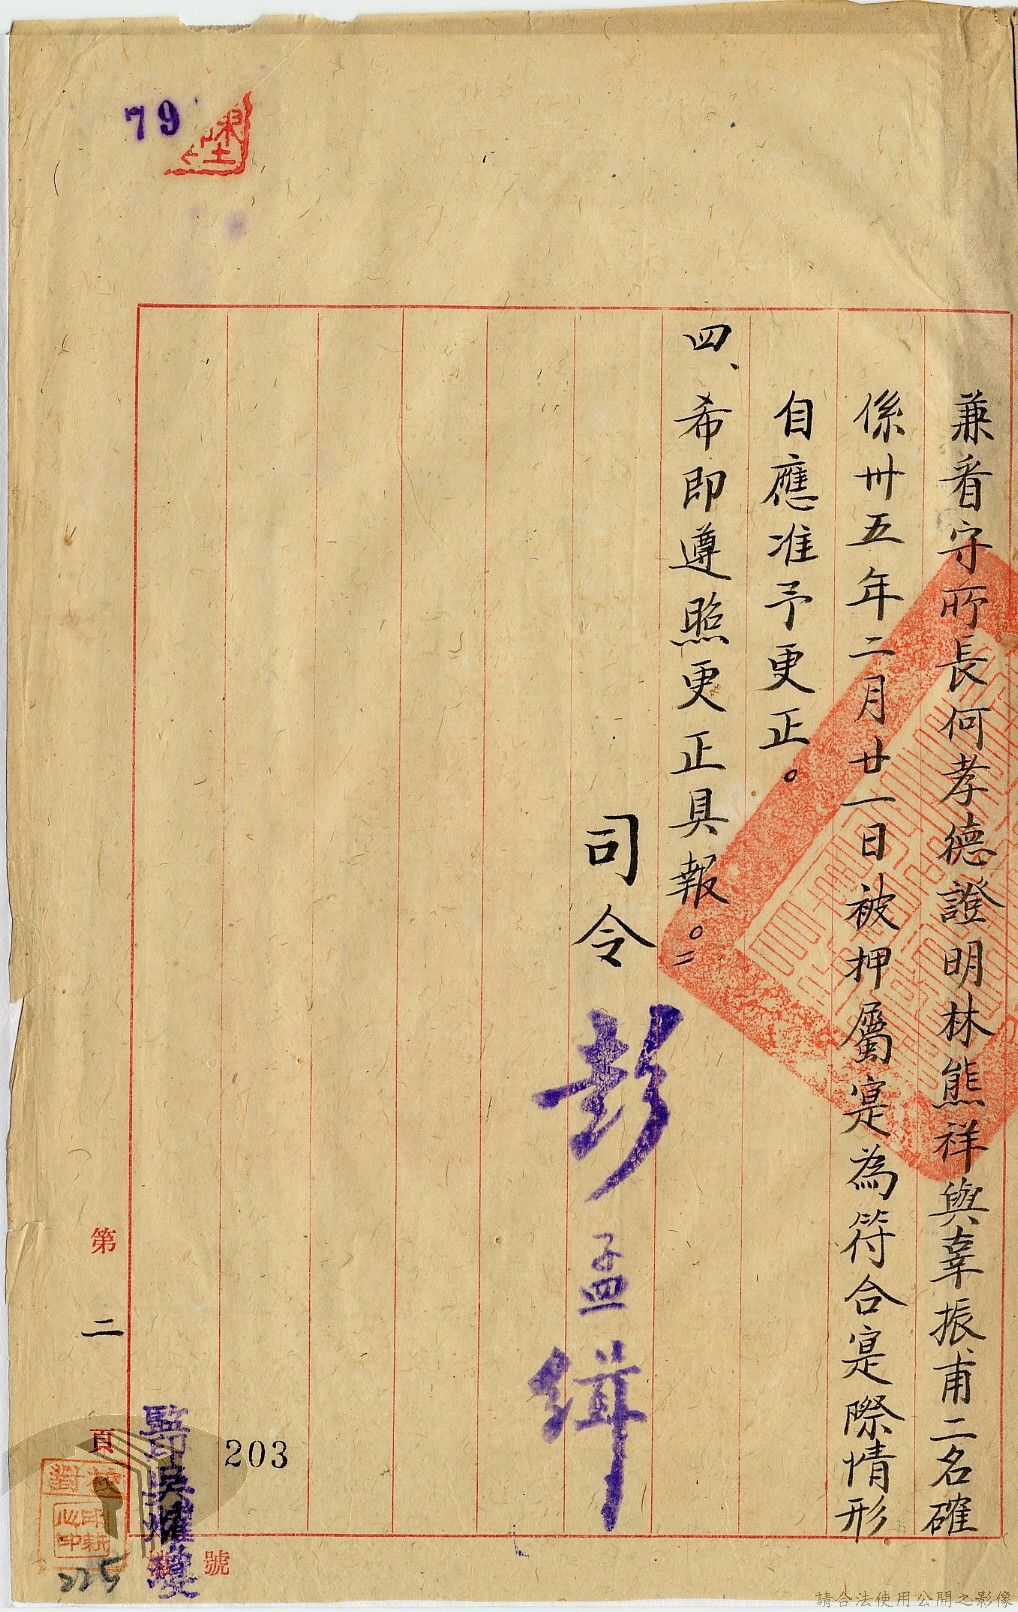 79
兼看守所長何孝德證明林熊祥與辜振甫二名確
係卅五年二月廿一日被押屬寔為符合寔際情形
自應准予更正。
四、希即遵照更正具報。
司令彭孟緝
第二頁
203
號
監印吳
225
請合法使用公開之影像